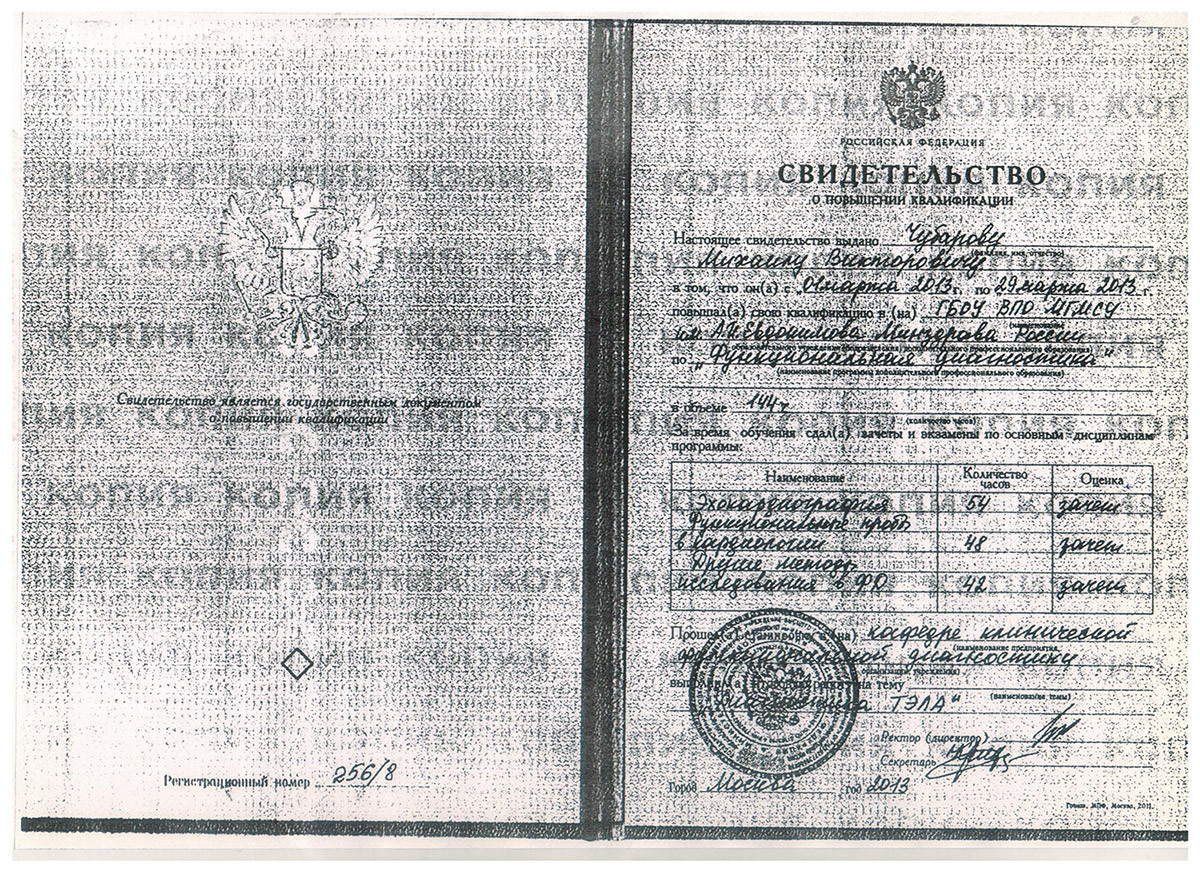 Свидетельство является государственным документом
о повышении квалификации
Регистрационный номер 256/8
РОССИЙСКАЯ ФЕДЕРАЦИЯ
СВИДЕТЕЛЬСТВО
О ПОВЫШЕНИИ КВАЛИФИКАЦИИ
Настоящее свидетельство выдано Чубарову
(фамилия, имя, отчество)
Михаилу Викторовичу
в том, что он(а) с „01 марта 2013 г. по 29 марта 2013 г.
повышал(а) свою квалификацию в (на) ГБОУ ВПО МГМСУ
(наименование
им. А.И. Евдокимова Минздрава России
образовательного учреждения (подразделения) дополнительного профессионального образования)
по „Функциональная диагностика"
(наименование программы дополнительного профессионального образования)
в объеме 144 ч
(количество часов)
За время обучения сдал(а) зачеты и экзамены по основным дисциплинам
программы:
Наименование Количество часов Оценка
Эхокардиография 54 зачет
Функциональные пробы
в кардиологии 48 зачет
Другие методы
исследования в ФД 42 зачет
Прошел(а) стажировку в (на) кафедре клинической
(наименование предприятия,
функциональной диагностики
организации, учреждения)
на тему
(наименование темы)
Диагностика ТЭЛА"
Ректор (директор)
Секретарь
Город Москва год 2013
Гознак, МПФ, Москва, 2011.